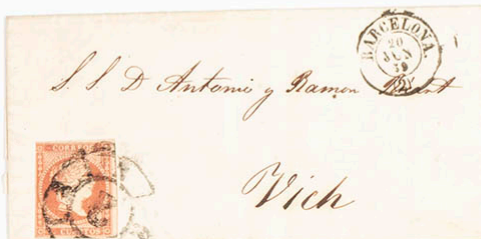 BARCELONA.
20
JUN
59
(2)
S. S. D Antonio y Ramon
CORREOS
CUARTOS
Vich